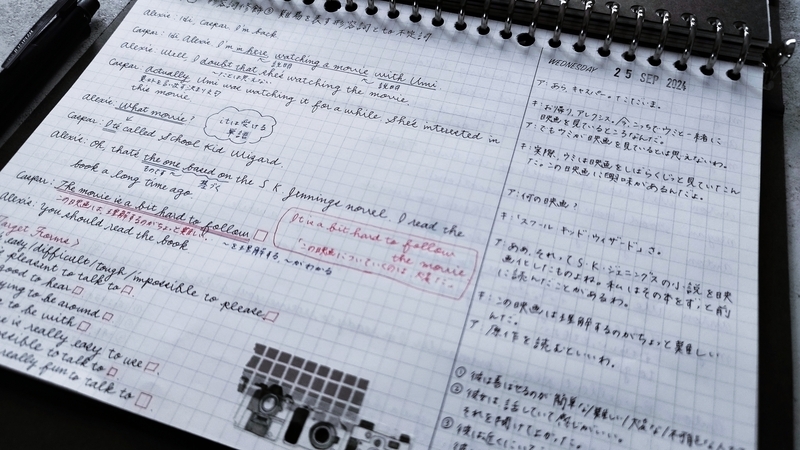 Alexis: Hi, Caspar. I'm back.
Caspar: Hi Alexis. I'm here watching a movie with Umi.
Alexis: Well I doubt that she's watching the movie.
Caspar: Actually Umi was watching it for a while. She's interested in
this movie.
Alexis: What movie?
Caspar: It's called School Kid Wizard.
Alexis: Oh, that's the one based on the S.K. Jennings novel. I read the
基づく
book a long time ago.
Caspar: The movie is a bit hard to follow
この映画は理解するのがちょっと難しい
Alexis: You should read the book
〜を理解する、〜がわかる
It is a bit hard to follow
the movie
Target Forms
easy/difficult/tough/impossible to please
pleasant to talk to
good to hear
to be around
to be with
is really easy to use
possible to talk to
really fun to talk to
WEDNESDAY 25 SEP 2024
ア: あら、キャスパー。ただいま。
キ: お帰り、アレクシス。今こっちでウミと一緒に
映画を見ているところなんだ。
ア: でもウミが映画を見ているとは思えないわ。
キ: 実際、ウミは映画をしばらくじっと見ていたん
だ。この映画に興味があるんだよ。
ア: 何の映画?
キ: 「スクール キッド ウィザード」さ。
ア: ああ、それってS・K・ジェニングスの小説を映
画化したものよね。私はその本をずっと前
に読んだことがあるわ。
キ: この映画は理解するのがちょっと難しい
んだ。
ア: 原作を読むといいわ。
① 彼は喜ばせるのが簡単な/難しい/大変な/不可能な
② 彼女は、話していて感じがいい。
それを聞けてよかった。